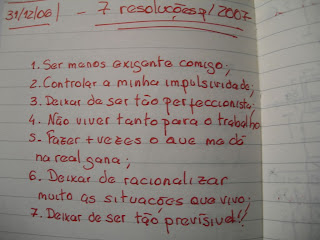 31/12/06 - 7 resoluções p/ 2007
1. Ser menos exigente comigo;
2. Controlar a minha impulsividade;
3. Deixar de ser tão perfeccionista;
4. Não viver tanto para o trabalho
5- Fazer + vezes o que me dá
na real gana;
6. Deixar de racionalizar
muito as situações que vivo;
7. Deixar de ser tão previsível!!